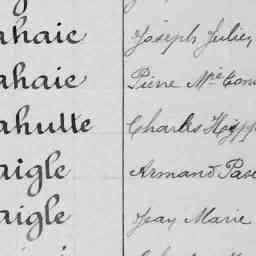 ahaie Joseph Julien
ahaie Pierre Mie
ahutte Charles
aigle Armand
aigle Jean Marie